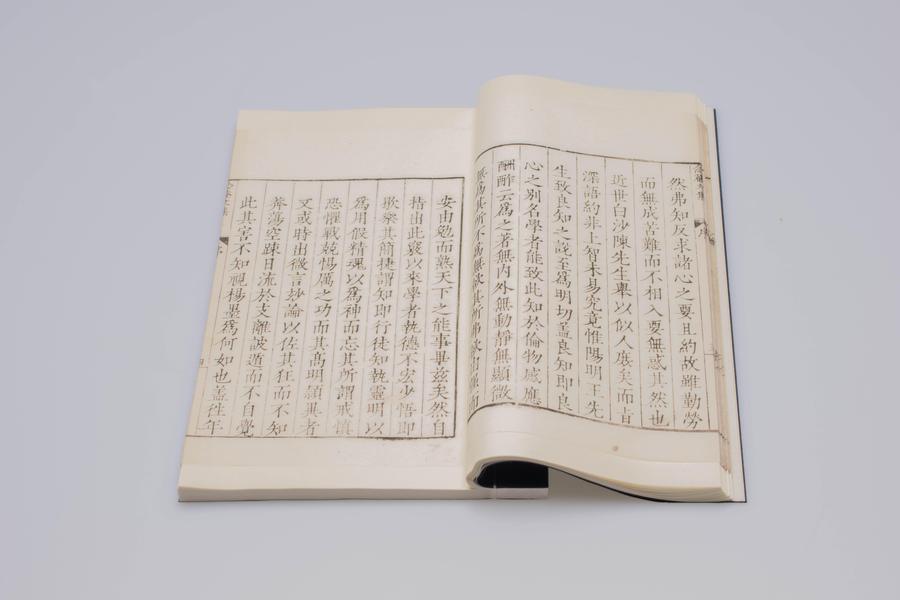 然弗知反求諸心之要且約故雖勤勞
而無成苦難而不相入要無惑其然也
近世白沙陳先生舉以似人庶矣而旨
深語約非上智未易究竟惟陽明王先
生致良知之說至爲明切蓋良知即良
心之別名學者能致此知於倫物感應
酬酢云爲之著無內外無動靜無顯微
無爲其所不爲無欲其所弗欲
安由勉而熟天下之能事畢茲矣然自
出此以來學者執德不宏少悟即
歡樂其簡捷謂知即行徒知執靈明以
爲用假精魂以爲神而忘其所謂戒慎
恐懼戰兢惕厲之功而其高明穎異者
又或時出微言玅論以佐其狂而不知
莽蕩空疎日流於支離詖遁而不自覺
此其害不知視楊墨爲何如也蓋徃年